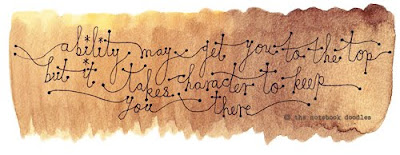 ability may get you to the top
but it takes character to keep
you there
© the notebook doodles